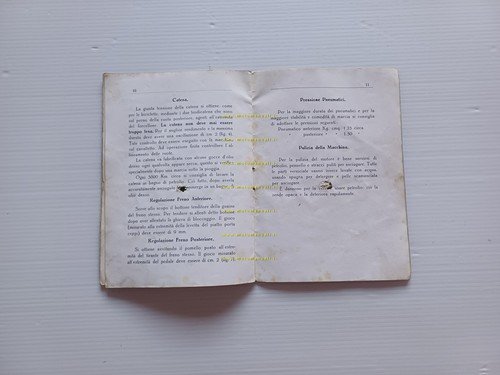 10
Catena.
La giusta tensione della catena si ottiene, come
per le biciclette, mediante i due tendicatena che sono
sul perno della ruota posteriore, agenti all'estremità
del forcellone. La catena non deve mai essere
troppo tesa. Per il miglior rendimento e la massima
durata deve avere una oscillazione di cm. 2 (fig. 4).
Tale controllo deve essere eseguito con la macchina
sul cavalletto. Ad operazione finita controllare l'al-
lineamento delle ruote.
La catena va lubrificata con alcune gocce d'olio
ogni qual volta appaia secca, questo si verifica
dopo una marcia sotto la pioggia.
Ogni 5000 Km. circa si consiglia di lavare la
catena in bagno di petrolio. Con fatto
accuratamente asciugata immergerla in un bagno
Regolazione Freno Anteriore.
Serve allo scopo il bottone tenditore dello gnasso
del freno stesso. Per tendere si sviti detto bottone
dopo aver allentata la ghiera di bloccaggio. Il gioco
(misurato alla estremità della levetta del piatto porta
ceppi) deve essere di 9 mm.
Regolazione Freno Posteriore.
Si ottiene avvitando il pomello posto all'estre-
mità del tirante del freno stesso. Il gioco misurato
all'estremità del pedale deve essere di cm. 2 (fig.
11
Pressione Pneumatici.
Per la maggiore durata dei pneumatici e per la
maggiore stabilità e comodità di marcia si consiglia
di adottare le pressioni seguenti:
Pneumatico anteriore Kg. cmq. 1,25 circa
posteriore
Pulizia della Macchina.
Per la pulizia del motore è bene servirsi di
petrolio, pennello e stracci puliti per asciugare. Tutte
le parti verniciate vanno invece lavate con acqua,
usando spugna per detergere e pelle scamosciata
per asciugare.
È dannoso per la usare petrolio che la
rende opaca e la deteriora rapidamente.